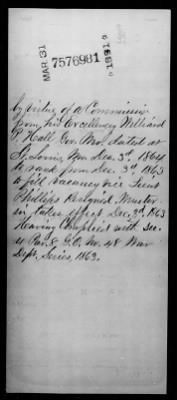 MAR 31
7576981
1891
by virtue of a Commission
from his Excellency Willard
P. Hall Gov. Mo. dated at
St. Louis, Mo. Dec. 3d 1864
to rank from Dec. 3d 1863
to fill vacancy vice Lieut
Phillips Resigned. Muster
in takes effect Dec. 3d 1863
Having Complied with Sec.
4 Par. 8 G.O. No. 48 War
Dept. Series, 1863.